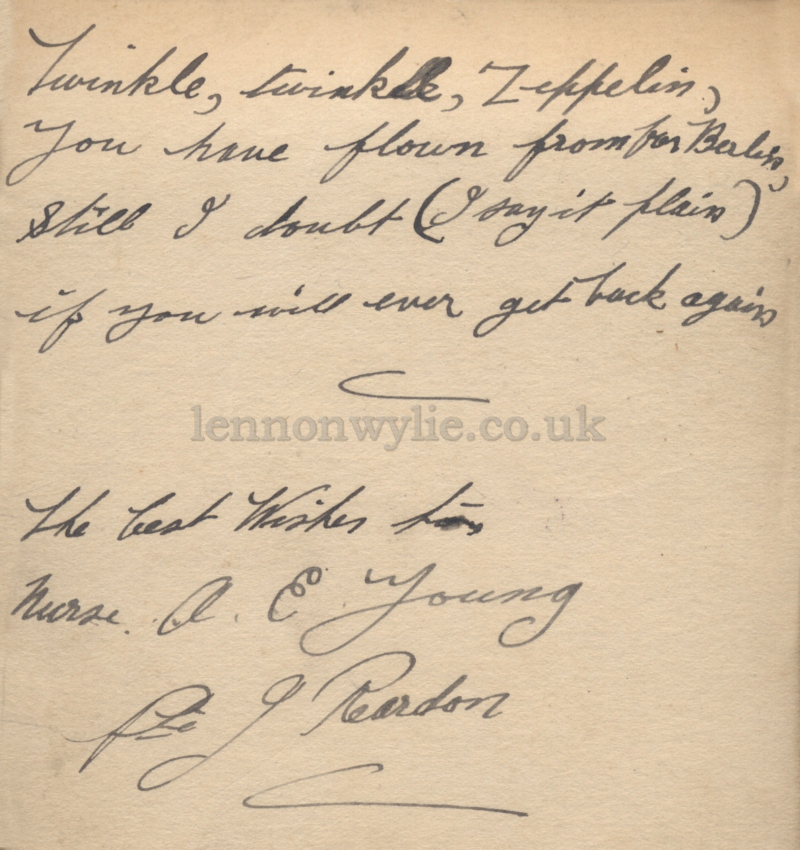 Twinkle, twinkle, Zeppelin,
You have flown from far Berlin,
Still I doubt (I say it plain)
if you will ever get back again
lennonwylie.co.uk
The best Wishes to
Nurse. A. E Young
Pte J Reardon